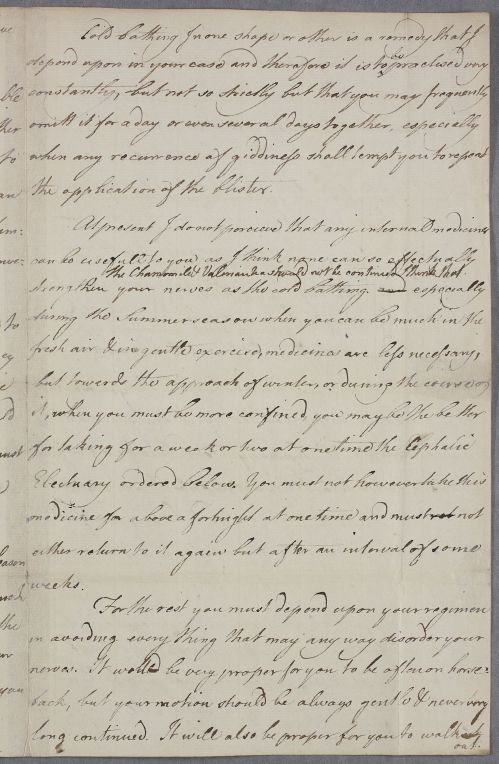 Cold bathing in one shape or other is a remedy that I
depend upon in your case and therefore it is to be practised very
constantly, but not so strictly but that you may frequently
omitt it for a day or even several days together, especially
when any recurrence of giddiness shall tempt you to repeat
the application of the blister.
At present I do not perceive that any internal medicines
can be usefull to you as I think none can so effectually
the Chamomile & Valerian should not be continued I think that
strengthen your nerves as the cold bathing and especially
during the Summer season when you can be much in the
fresh air & in gentle exercise, medicines are less necessary,
but towards the approach of winter, or during the course of
it, when you must be more confined you may be the better
for taking for a week or two at one time the Cephalic
Electuary ordered below. You must not however take this
medicine for above a forhnight at one time and must not
either return to it again but after an interval of some
weeks.
For the rest you must depend upon your regimen
in avoiding every thing that may any way disorder your
nerves. It would be very proper for you to be often on horse-
back, but your motion should be always gentle & never very
long continued. It will also be proper for you to walk
out.
ve
ble
ther
to
an
to
cy
must
eason
much
the
or
you